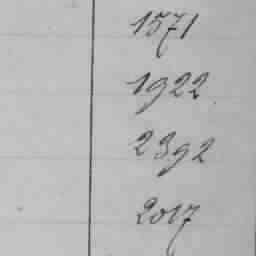 1571
1922
2392
2017